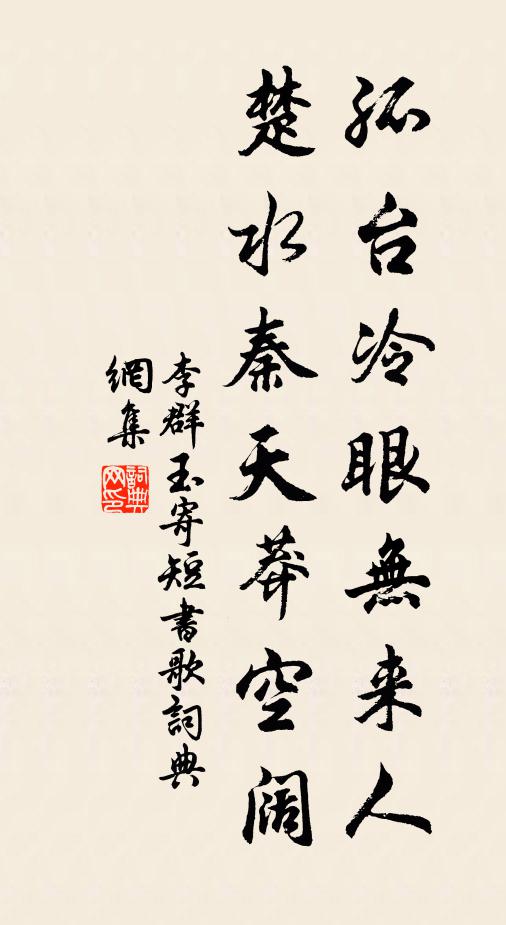 孤台冷眼無来人
楚水秦天莽空闊
李群玉寄短書歌詞典
網集
詞典网印